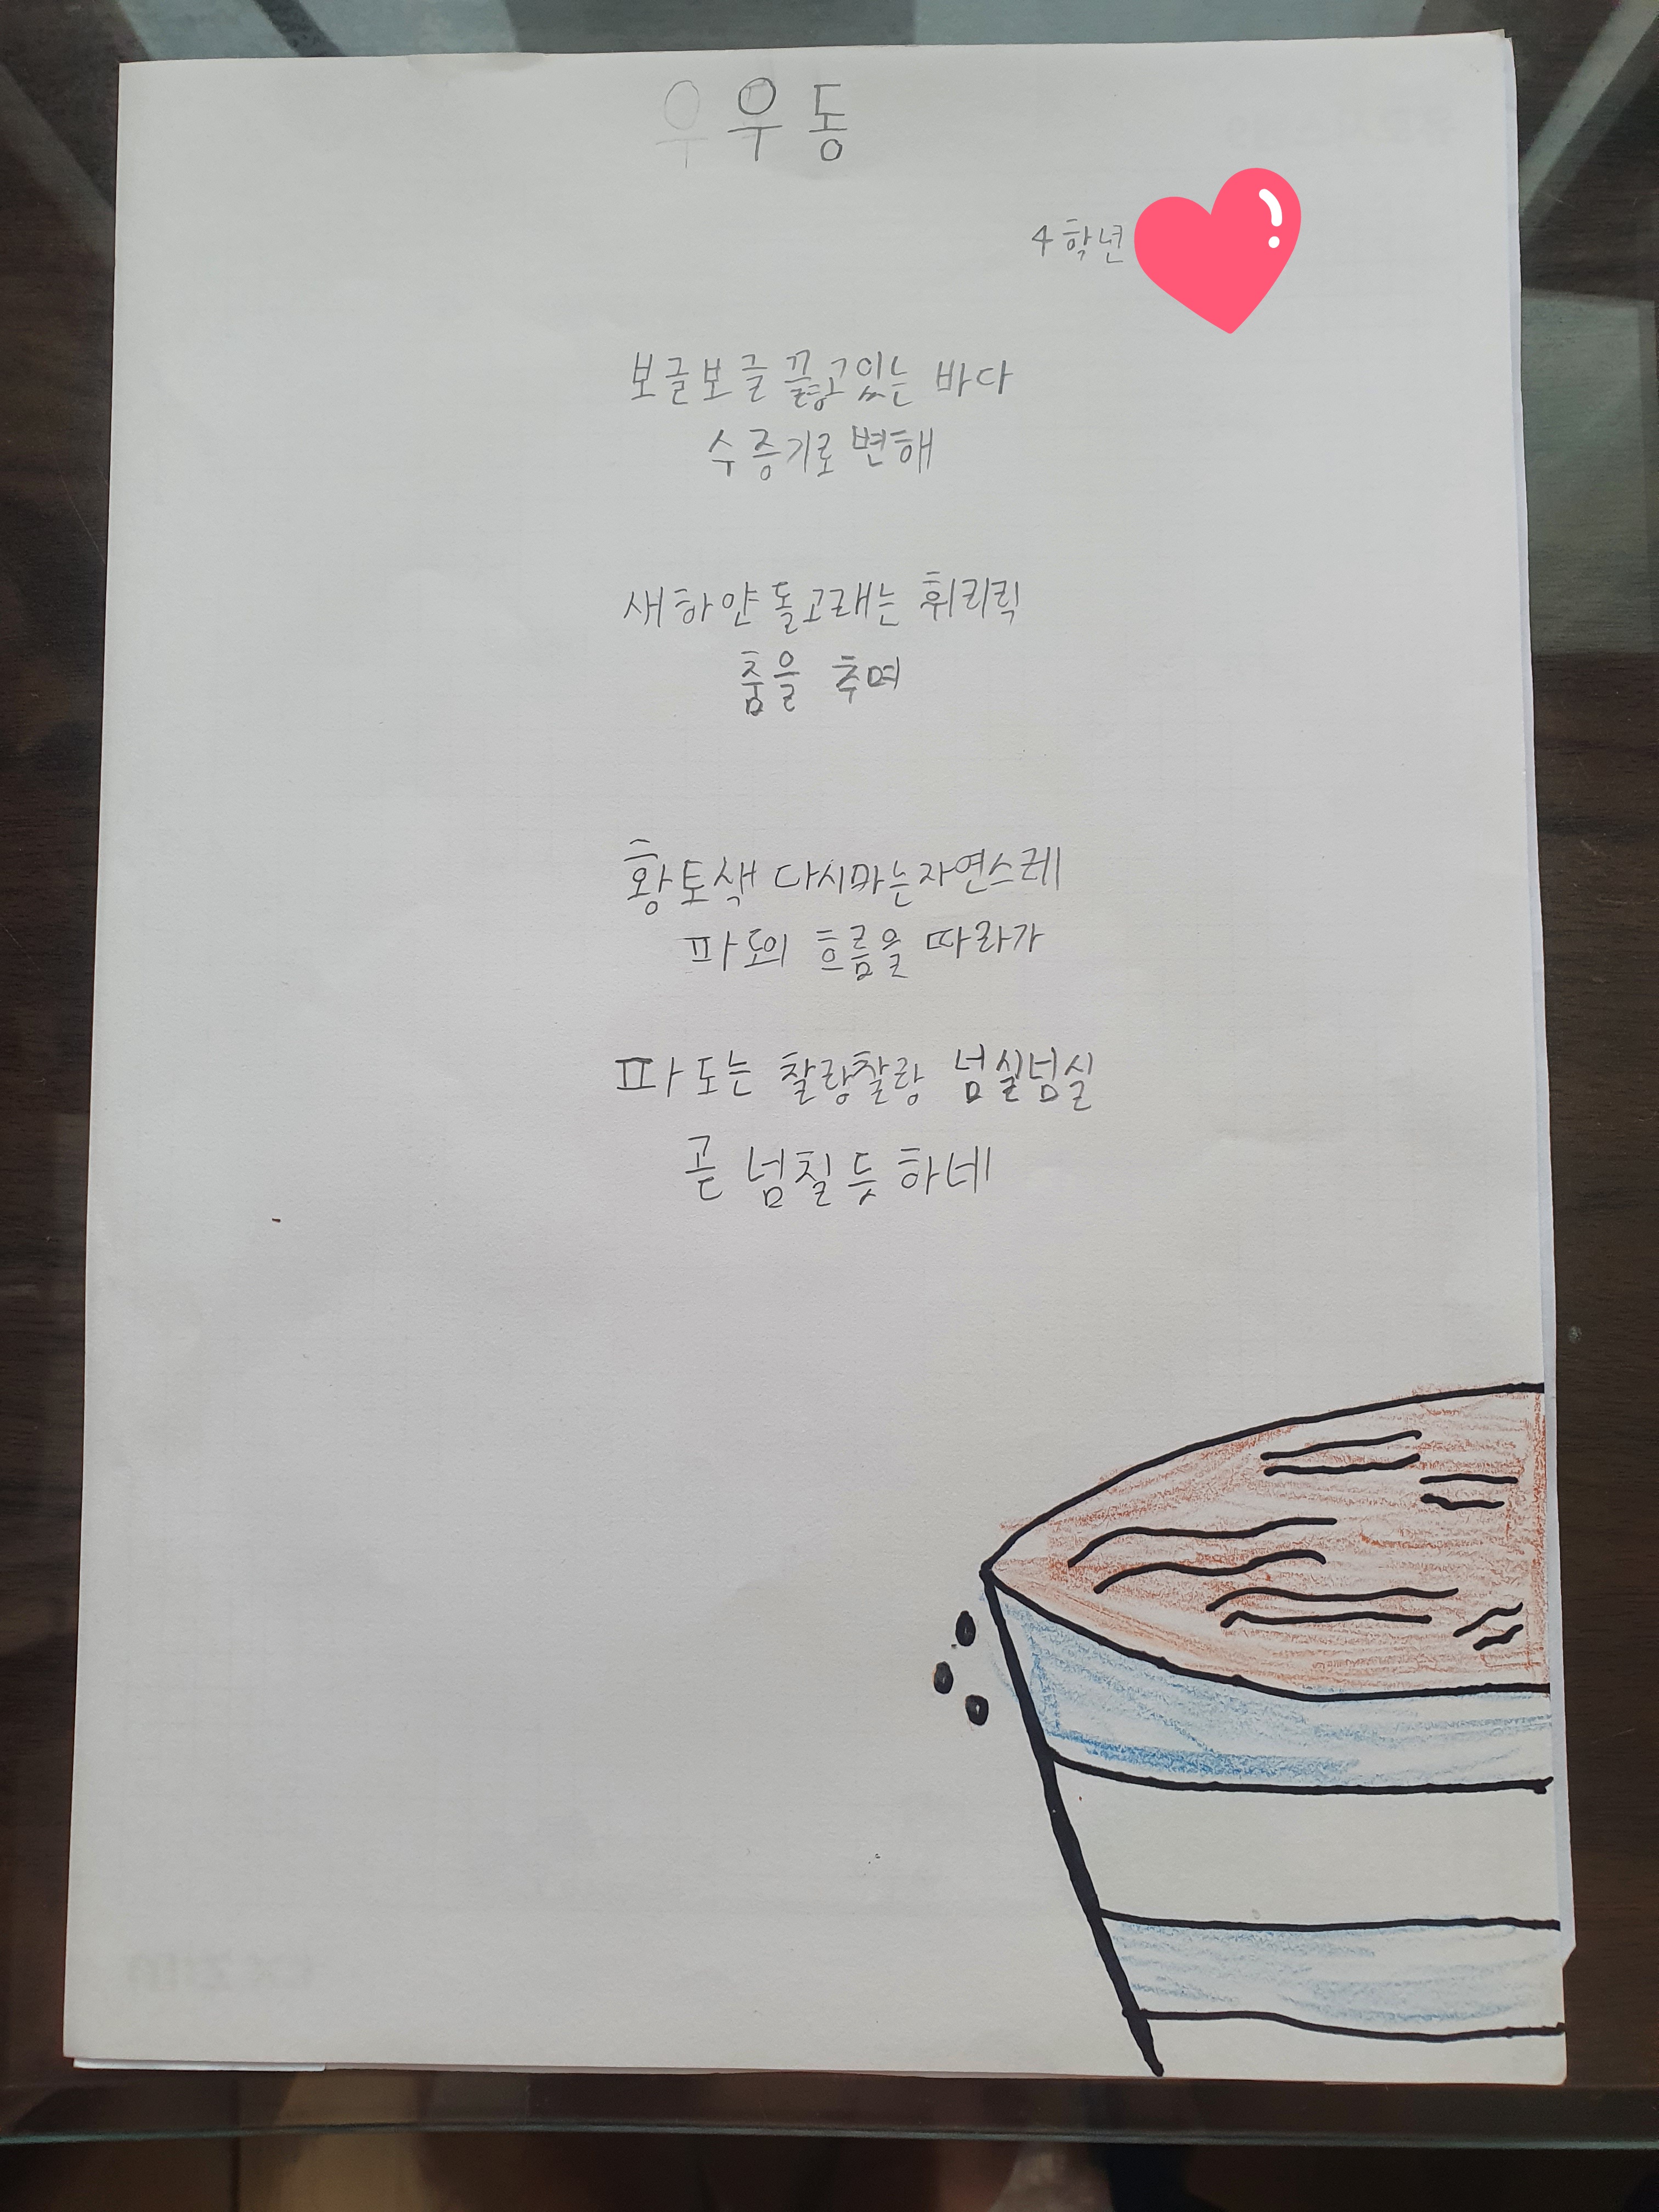 우우동
4학년
보글보글 끓고있는 바다
수증기로 변해
새하얀 돌고래는 휘리릭
춤을 추며
황토색 다시마는 자연스레
파도의 흐름을 따라가
파도는 찰랑찰랑 넘실넘실
곧 넘칠 듯 하네